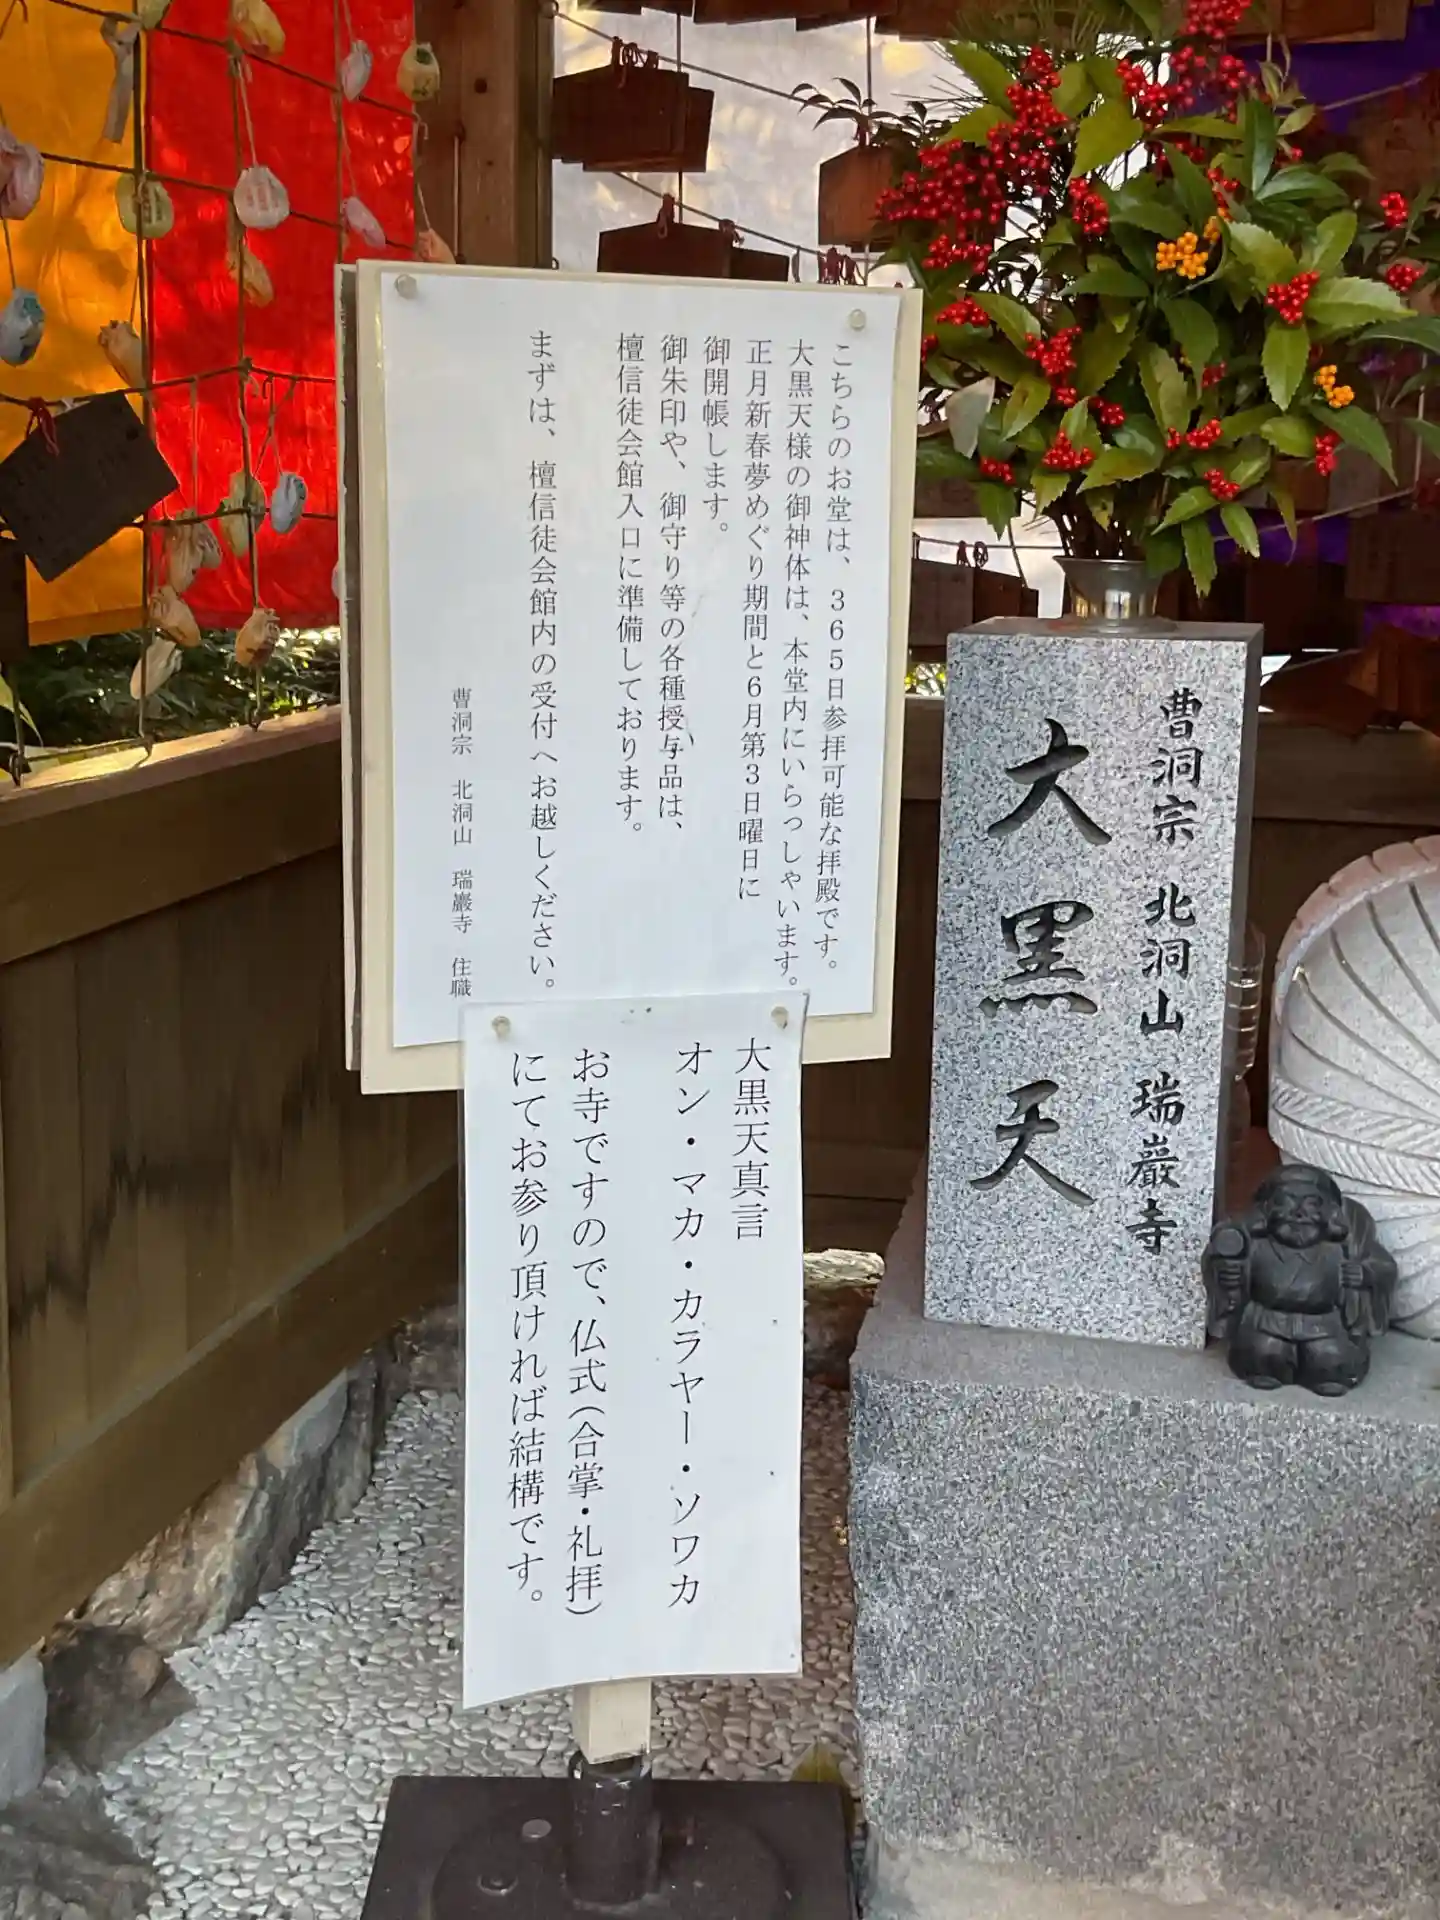 こちらのお堂は、365日参拝可能な拝殿です。
大黒天様の御神体は、本堂内にいらっしゃいます。
正月新春夢めぐり期間と6月第3日曜日に
御開帳します。
御朱印や、御守り等の各種授与品は、
檀信徒会館入口に準備しております。
まずは、檀信徒会館内の受付へお越しください。
曹洞宗 北洞山 瑞巖寺 住職
大黒天真言
オン・マカ・カラヤー・ソワカ
お寺ですので、仏式(合掌・礼拝)
にてお参り頂ければ結構です。
曹洞宗 北洞山 瑞巌寺
大黒天